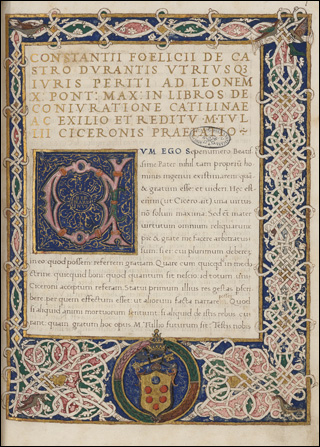 CONSTANTII FOELICII DE CA
STRO DVRANTIS VTRIVSQ;
IVRIS PERITI AD LEONEM
X. PONT: MAX: IN LIBROS DE
CONIVRATIONE CATILINAE
AC EXILIO ET REDITV M·TVL
LII CICERONIS PRAEFATIO
CVM EGO Sepenumero Beatis
sime Pater nihil tam proprium ho
minis ingenui existimarem quam
& gratum esse et uideri. Hec est
enim (ut Cicero ait) una uirtus
non solum maxima. Sed et mater
uirtutum omnium reliquarum
pie & grate me facere arbitratus
sum, si ei cui plurimum deberem
in eo quod possem referrem gratiam. Quare cum quicquid in me do
ctrine quicquid boni quid quantum sit nescio id totum ipsi
Ciceroni acceptum referam. Statui primum illius res gestas scri
bere per quem effectum esset ut aliorum facta narrarem. Quod
si aliquid animi mortuorum sentiunt: si aliquid de istis rebus cu
rant: quam gratum hoc opus M. Tullio futurum sit: Testis nobis